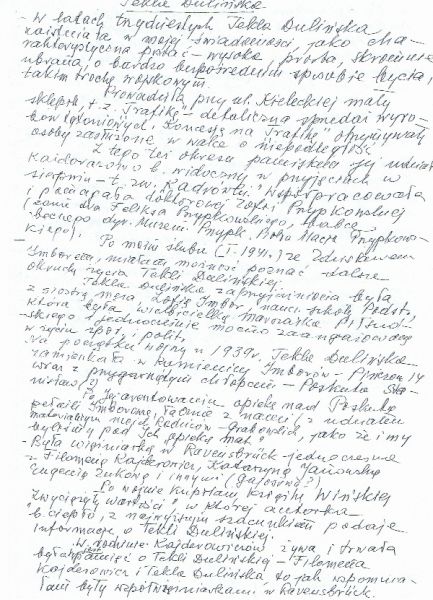 Tekla Dulińska
- W latach trzydziestych Tekla Dulińska
zaistniała w mojej świadomości, jako cha-
rakterystyczna postać - wysoka, prosta, skromnie
ubrana, o bardzo bezpośrednim sposobie bycia,
takim trochę wojskowym.
Prowadziła przy ul. Kieleckiej mały
sklepik, t.z. Trafikę - detaliczną sprzedaż wyro-
bów tytoniowych. Koncesję na "trafikę" otrzymywały
osoby zasłużone w walce o niepodległość
Z tego też okresu pamiętam jej udział
każdorazowo b. widoczny w przyjęciach w
sierpniu - t. zw. "Kadrówki". Współpracowała
i pomagała doktorowej Zofii Przypkowskiej
(żonie dra Feliksa Przypkowskiego, babce
obecnego dyr. Muzeum Przypk. Pana Macieja Przypkow-
skiego).
- Po moim ślubie (I. 1941.) ze Zdzisławem
Imborem, miałam możność poznać dalsze
okruchy życia Tekli Dulińskiej.
Tekla Dulińska zaprzyjaźniona była
z siostrą męża Zofią Imbor, naucz. szkoły Podst.,
która była wielbicielką marszałka Piłsud-
skiego i jednocześnie mocno zaangażowaną
w życie społ. i polit.
Na początku wojny w 1939r. Tekla Dulińska
zamieszkała w kamienicy Imborów - Pińczow. 14
wraz z przygarniętym chłopcem - Poskuta Sta-
nisław (?)
Po Jej aresztowaniu opiekę nad Poskutą
pełnili Imborowie, łącznie z nami i z udziałem
materialnym mojej Rodziców - Grabowskich, jako że i my
byliśmy pod Ich opieką mat.
Była więźniarką w Ravensbrück - jednocześnie
z Filomeną Kajderowicz, Katarzyną Janowską
Eugenią Żukową i innymi
Po wojnie kupiłam książkę Wińskiej
"Zwyciężyły wartości" w której autorka
b. ciepło, z najwyższym szacunkiem podaje
informacje o Tekli Dulińskiej.
W rodzinie Kajderowiczów żywa i trwała
była pamięć o Tekli Dulińskiej - Filomena
Kajderowicz i Tekla Dulińska to jak wspomnia-
łam były współwięźniarkami w Ravensbrück.